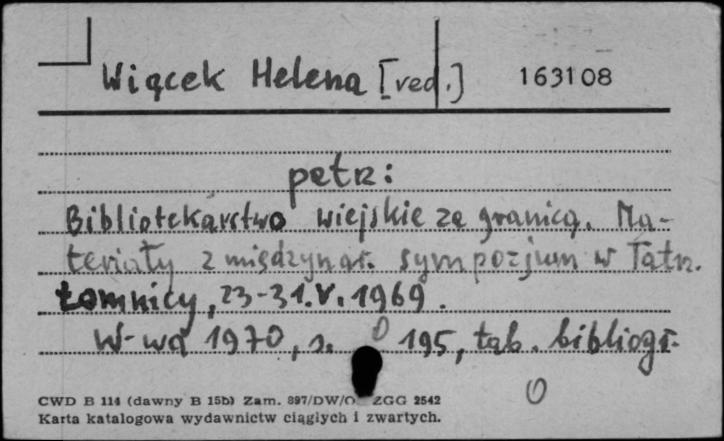 Wiącek Helena [red.] 163108
patrz:
Bibliotekarstwo wiejskie za granicą. Ma-
teriały z międzynar. sympozjum w Tatrz.
Łomnicy, 23-31.V.1969.
W-wa 1970, s. 195, tab. bibliogr.
CWD B 114 (dawny B 15b) Zam. 897/DW/O ZGG 2542
Karta katalogowa wydawnictw ciągłych i zwartych.